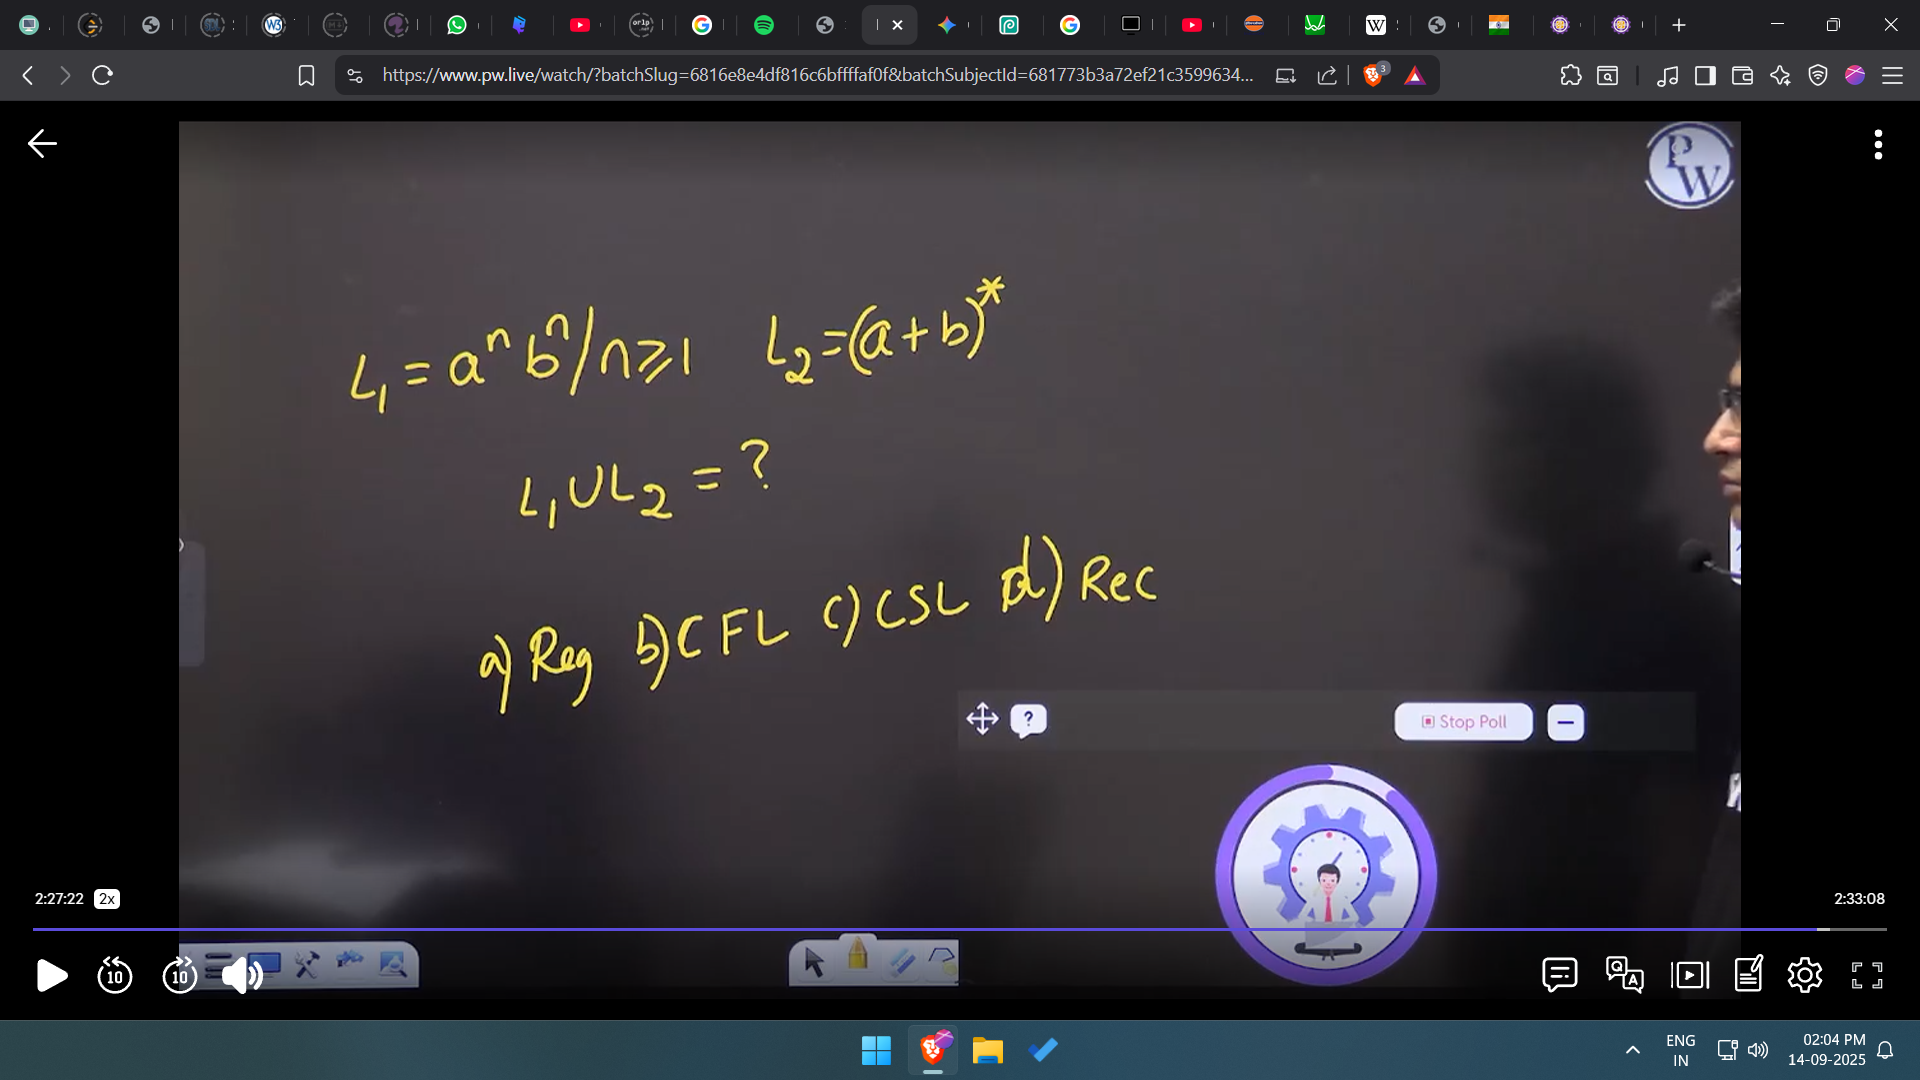 https://www.pw.live/watch/?batchSlug=6816e8e4df816c6bffffaf0f&batchSubjectId=681773b3a72ef21c3599634...
3
PW
L₁ = aⁿ bⁿ / n ≥ 1 L₂ = (a + b)*
L₁ U L₂ = ?
a) Reg b) CFL c) CSL d) Rec
?
Stop Poll
2:27:22 2x
2:33:08
10
10
ENG
IN
02:04 PM
14-09-2025